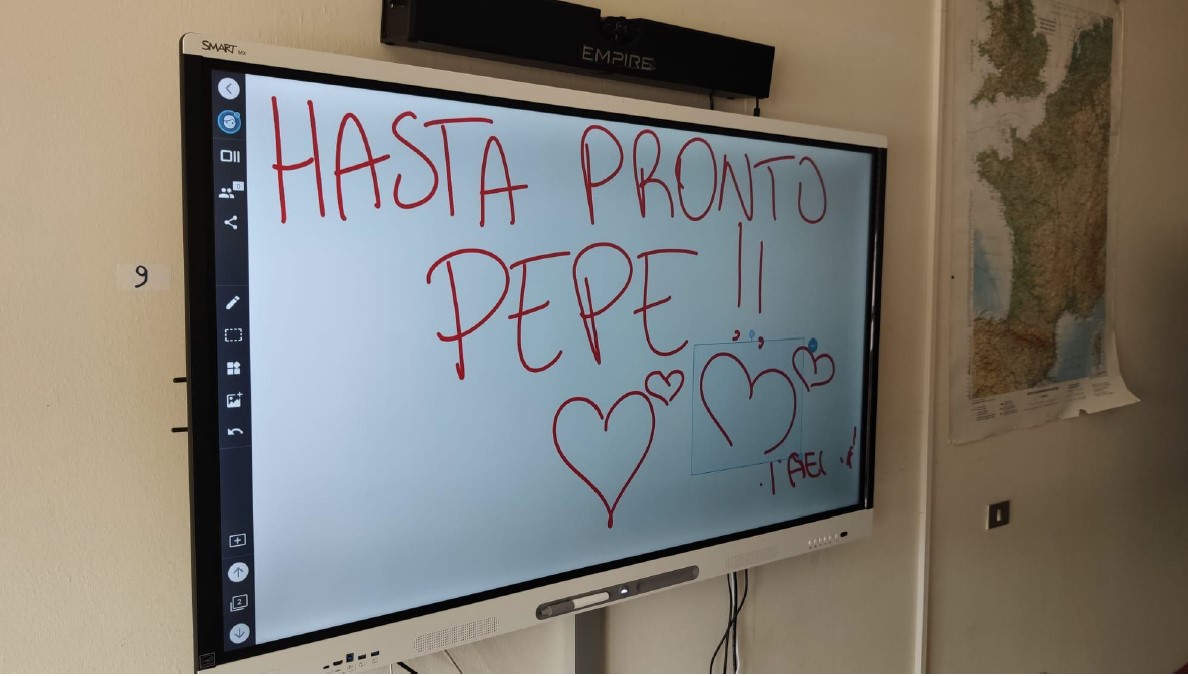 EMPIRE
SMART MX
HASTA PRONTO
PEPE !!
9
0
2